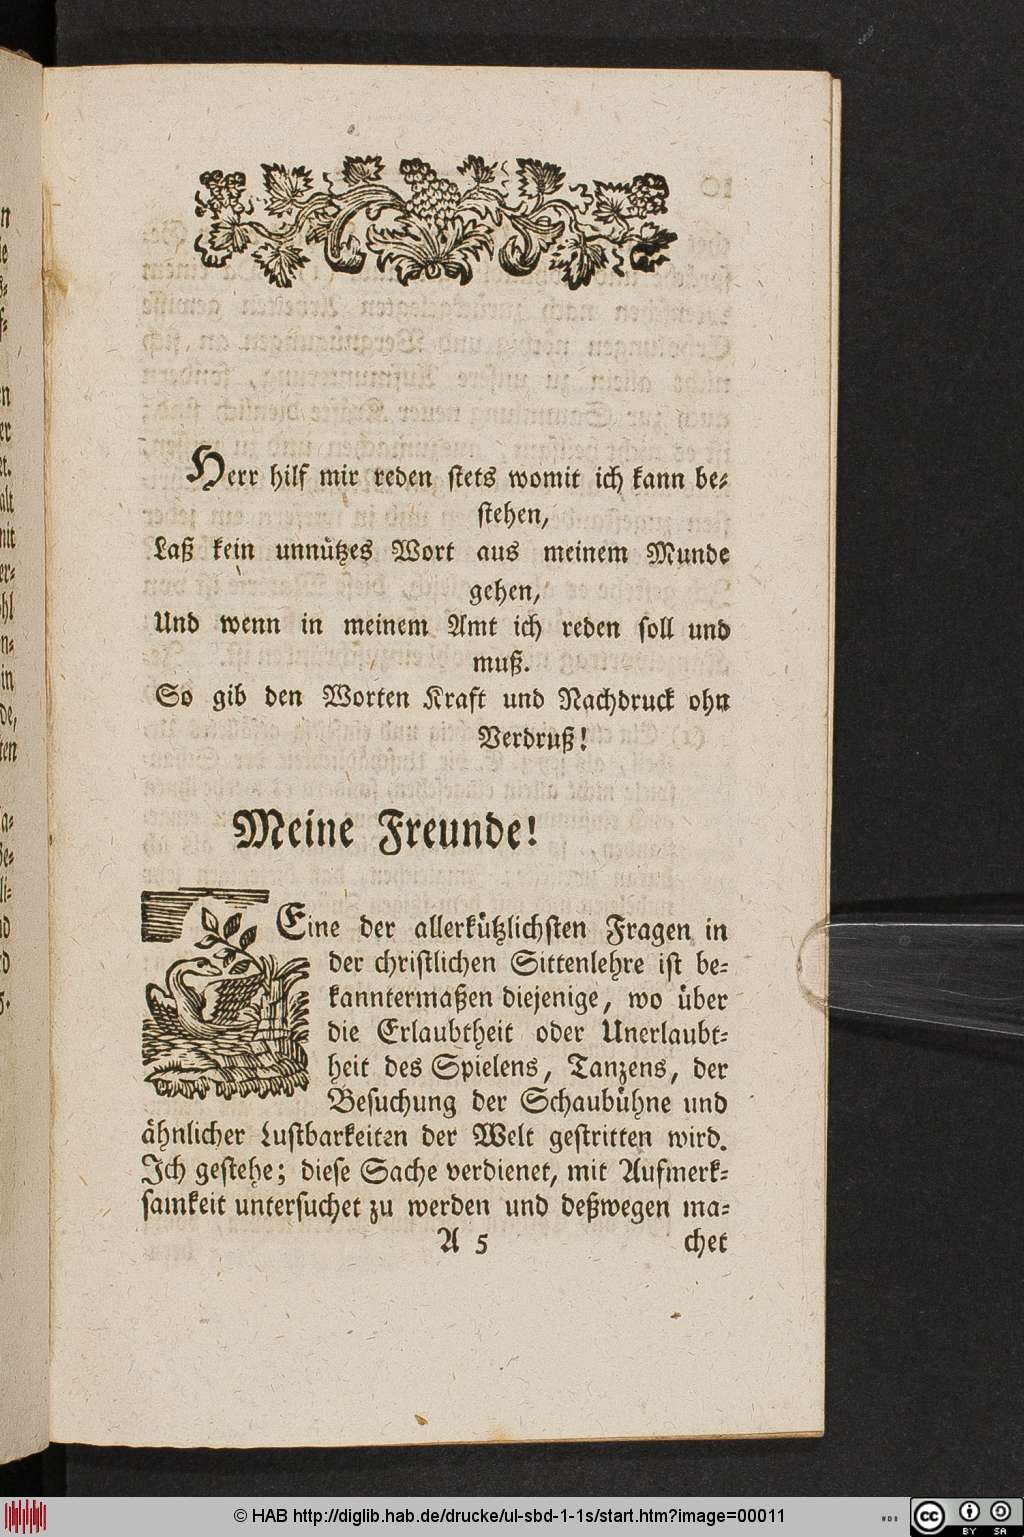 Herr hilf mir reden stets womit ich kann be⸗
stehen,
Laß kein unnützes Wort aus meinem Munde
gehen,
Und wenn in meinem Amt ich reden soll und
muß.
So gib den Worten Kraft und Nachdruck ohn
Verdruß!
Meine Freunde!
Eine der allerkützlichsten Fragen in
der christlichen Sittenlehre ist be⸗
kanntermaßen diejenige, wo über
die Erlaubtheit oder Unerlaubt⸗
heit des Spielens, Tanzens, der
Besuchung der Schaubühne und
ähnlicher Lustbarkeiten der Welt gestritten wird.
Ich gestehe; diese Sache verdienet, mit Aufmerk⸗
samkeit untersuchet zu werden und deßwegen ma⸗
A 5 chet
© HAB http://diglib.hab.de/drucke/ul-sbd-1-1s/start.htm?image=00011
WDB
cc BY SA